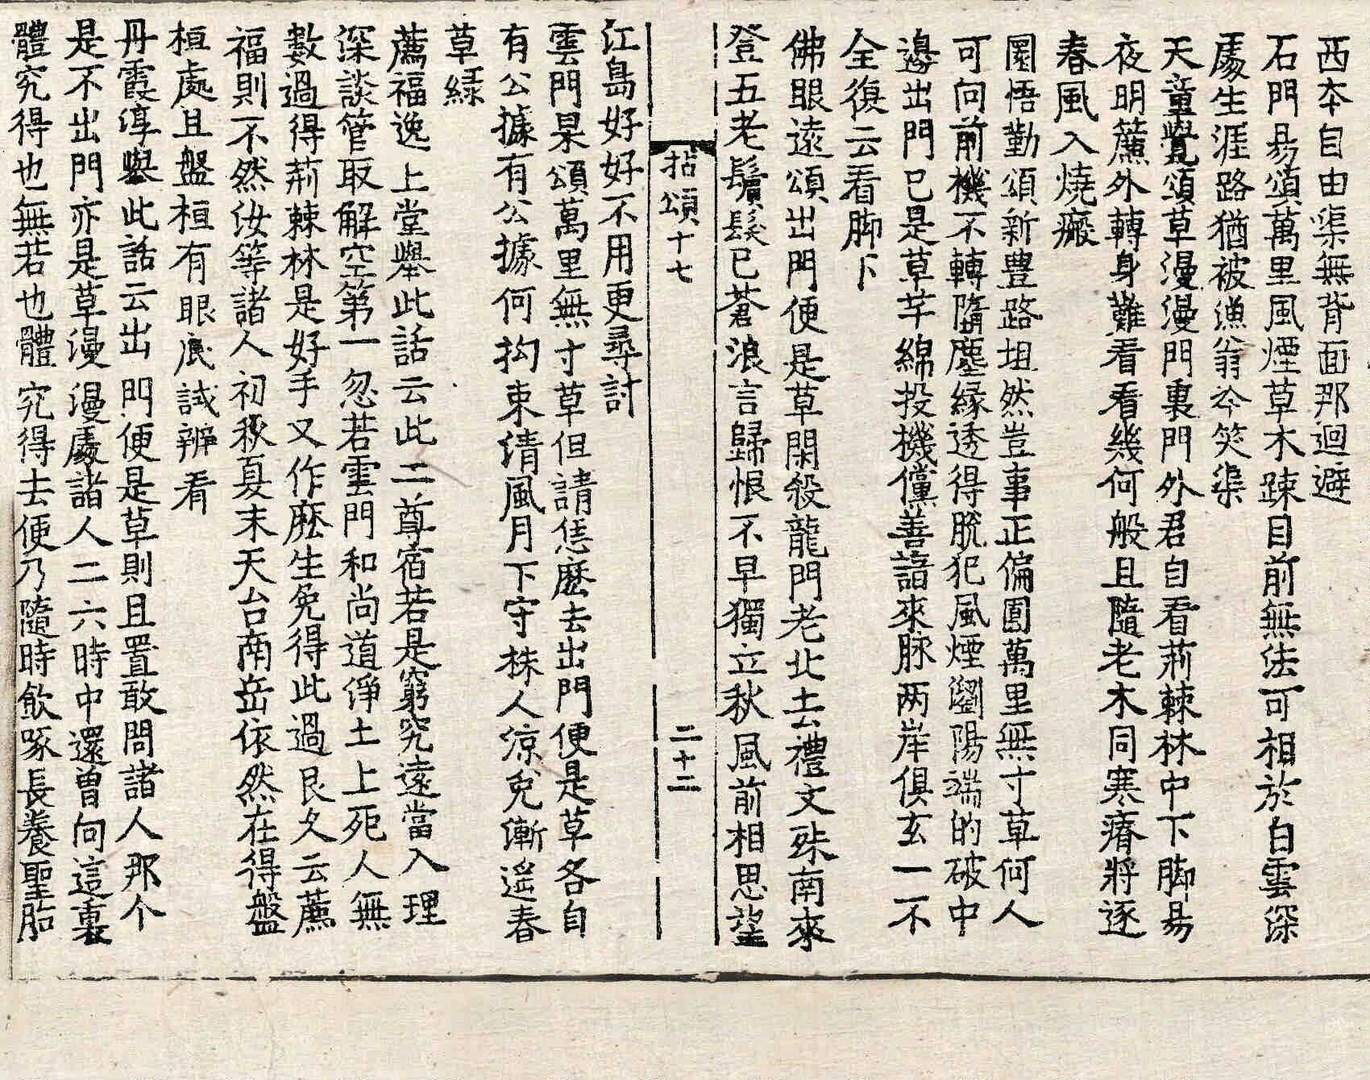 西本自由渠無背面那迴避
石門易頌萬里風煙草木踈目前無法可相於白雲深
處生涯路猶被漁翁冷笑渠
天童覺頌草漫漫門裏門外君自看荊棘林中下脚易
夜明簾外轉身難看看幾何般且隨老木同寒瘠將逐
春風入燒瘢
圜悟勤頌新豊路坦然豈事正偏圓萬里無寸草何人
可向前機不轉隨塵緣透得脫犯風煙瀏陽端的破中
邊出門已是草芊綿投機儻善諳來脉两岸俱玄一不
全復云看脚下
佛眼遠頌出門便是草閑殺龍門老北去禮文殊南來
登五老鬚髮已蒼浪言歸恨不早獨立秋風前相思望
拈頌十七 二十二
江島好好不用更尋討
雲門杲頌萬里無寸草但請恁麽去出門便是草各自
有公據有公據何拘束清風月下守株人凉兔漸遙春
草緑
薦福逸上堂擧此話云此二尊宿若是窮究遠當入理
深談管取解空第一忽若雲門和尚道净土上死人無
數過得荊棘林是好手又作麽生免得此過良久云薦
福則不然汝等諸人初秋夏末天台南岳依然在得盤
桓處且盤桓有眼底試辨看
丹霞淳擧此話云出門便是草則且置敢問諸人那个
是不出門亦是草漫漫處諸人二六時中還曾向這裏
體究得也無若也體究得去便乃隨時飮啄長養聖胎